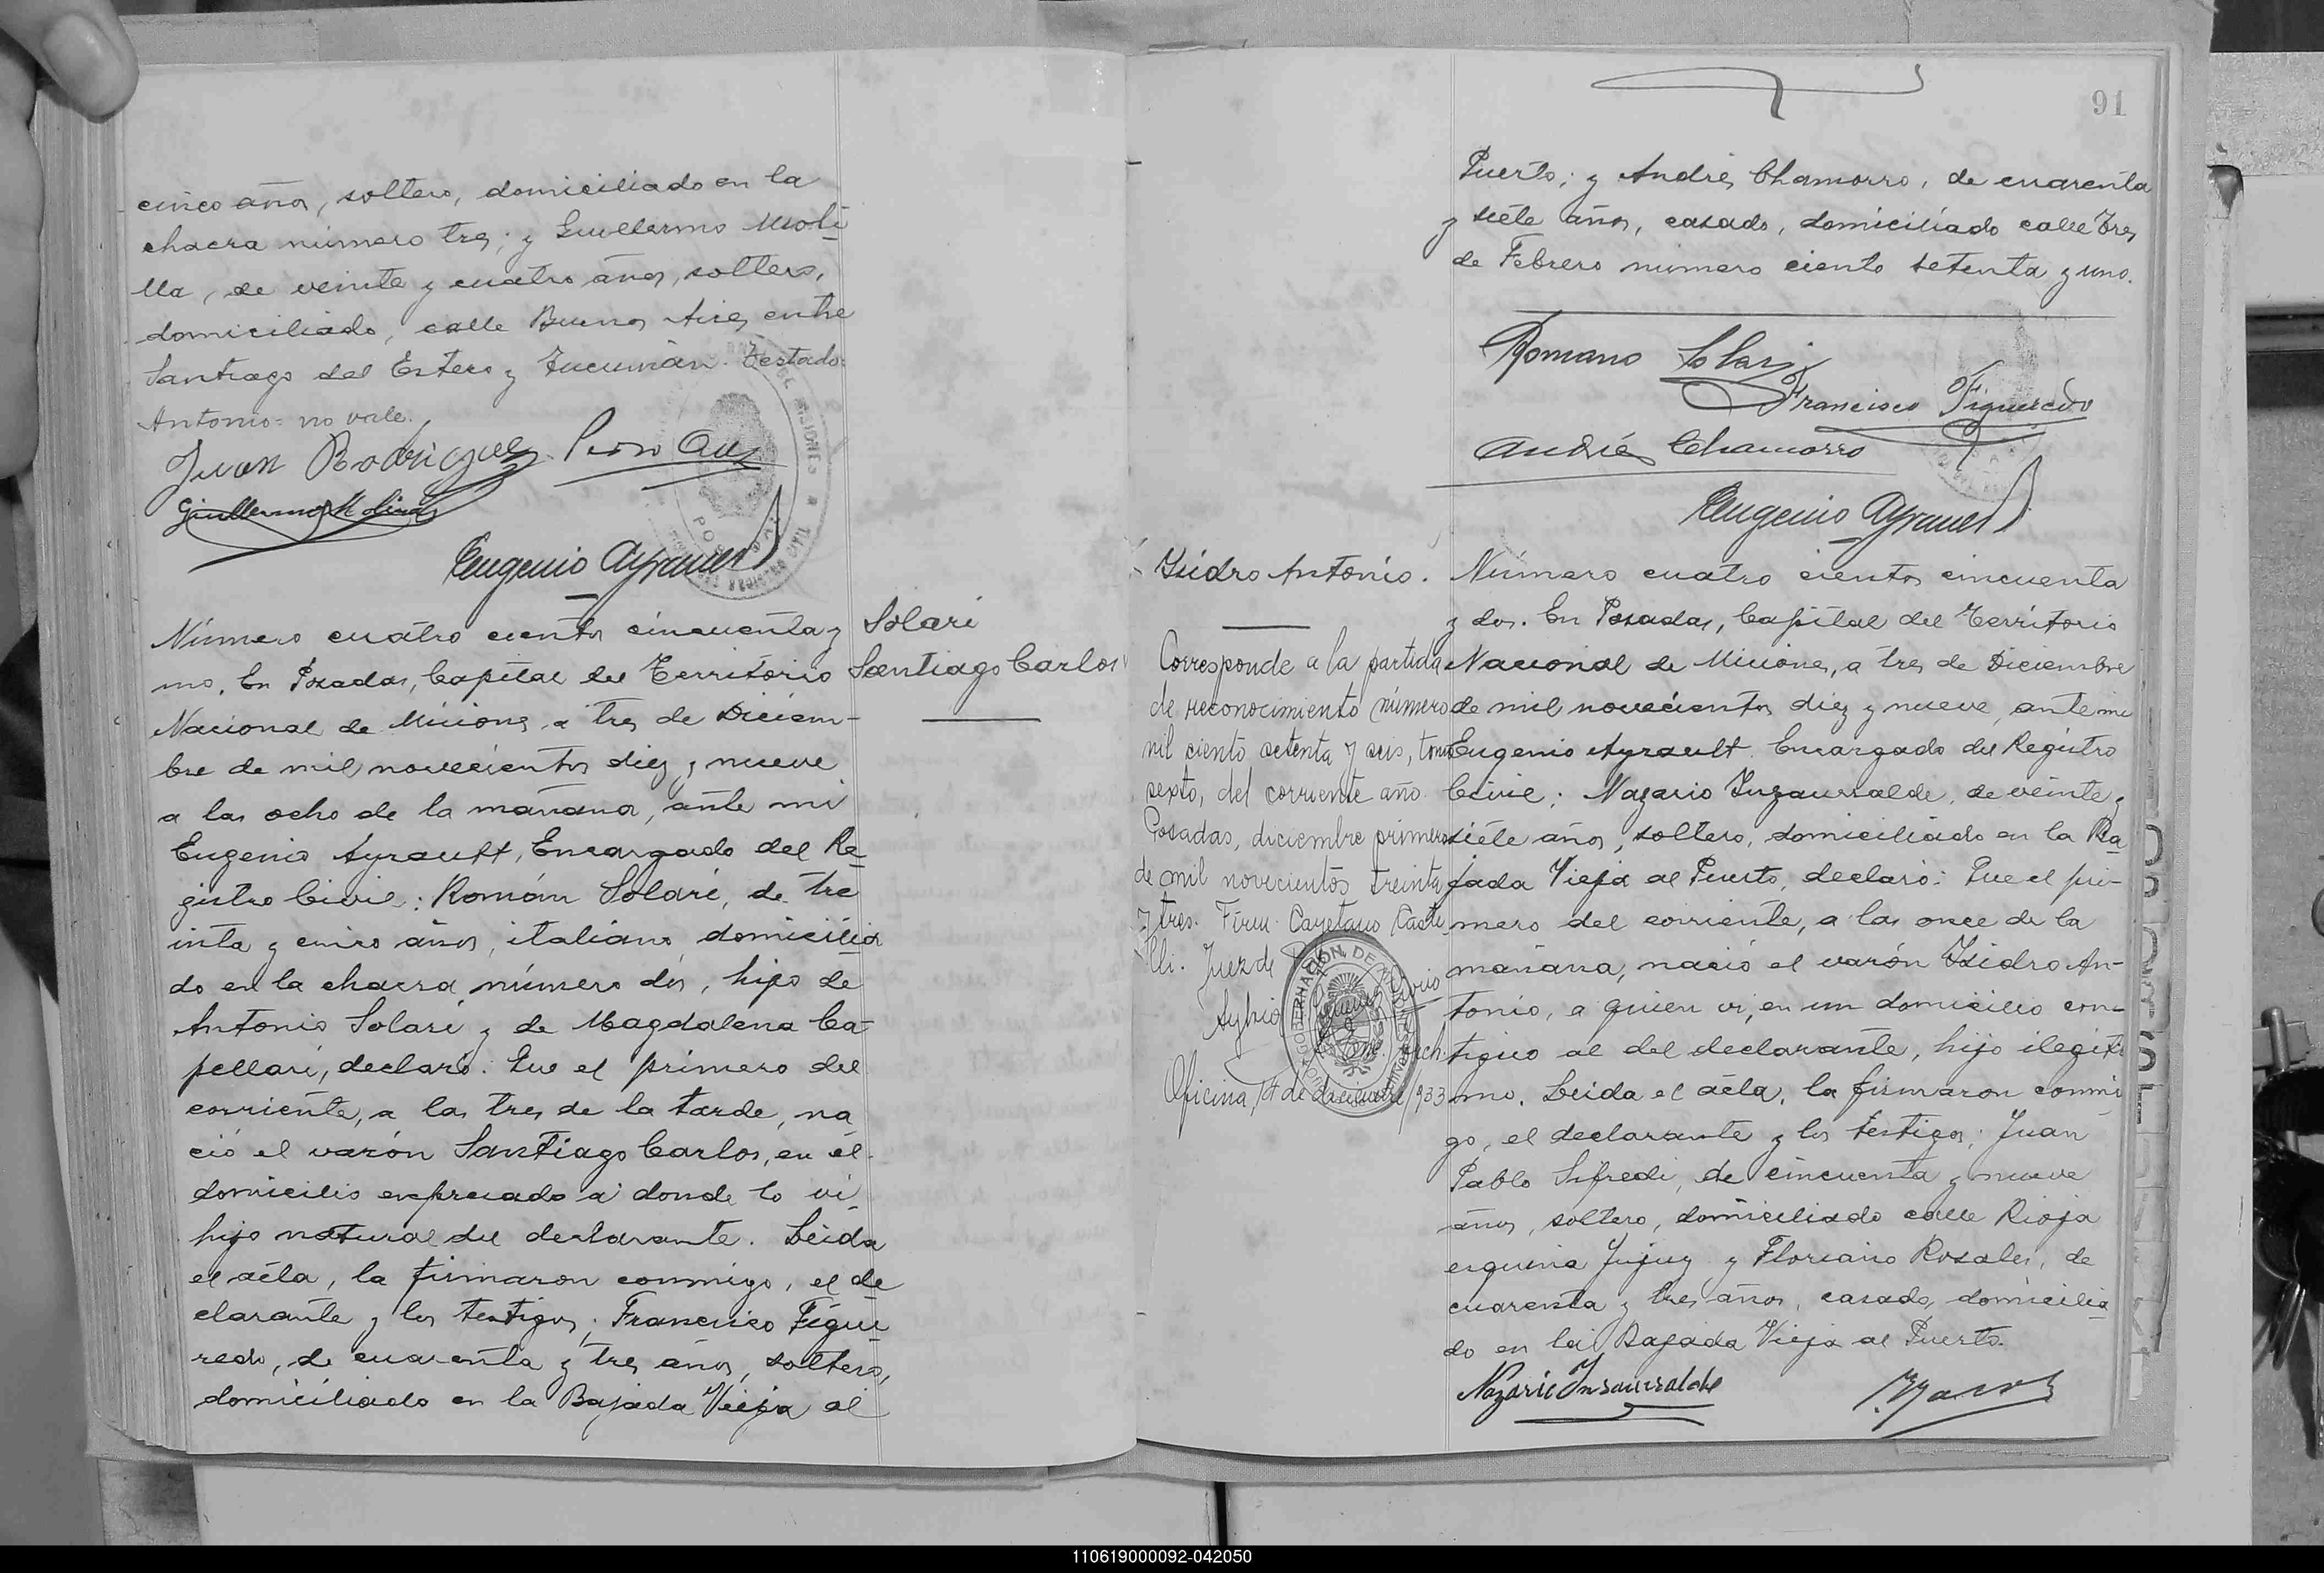 cinco años, soltero, domiciliado en la
chacra número tres; y Guillermo Moli-
lla, de veinte y cuatro años, soltero,
domiciliado, calle Buenos Aires entre
Santiago del Estero y Tucumán. Testado:
Antonio= no vale.
Juan Rodriguez Pedro
Guillermo Molina
Eugenio Ayrault
Número cuatro cientos cincuenta y
uno. En Posadas, Capital del Territorio
Nacional de Misiones, a tres de Diciem-
bre de mil novecientos diez y nueve
a las ocho de la mañana, ante mi
Eugenio Ayrault, Encargado del Re-
gistro Civil: Román Solari, de tre
inta y cinco años, italiano domicilia
do en la chacra número dos, hijo de
Antonio Solari y de Magdalena Ca-
pellari, declaró: Que el primero del
corriente, a las tres de la tarde, na
ció el varón Santiago Carlos, en el
domicilio expresado a donde lo vi,
hijo natural del declarante. Leida
el acta, la firmaron conmigo, el de
clarante y los testigos; Francisco Figue
redo, de cuarenta y tres años, soltero,
domiciliado en la Bajada Vieja al
Solari
Santiago Carlos
91
Puerto; y Andrés Chamorro, de cuarenta
y siete años, casado, domiciliado calle Tres
de Febrero número ciento setenta y uno.
Romano Solari
Francisco Figueredo
Andrés Chamorro
Eugenio Ayrault
Isidro Antonio.
Corresponde a la partida
de reconocimiento número
mil ciento setenta y seis, tomo
sexto, del corriente año.
Posadas, diciembre primero
de mil novecientos treinta
y tres. Firm. Cayetano Caste
lli. Juez de
Oficina, 14 de diciembre/933
Número cuatro cientos cincuenta
y dos. En Posadas, Capital del Territorio
Nacional de Misiones, a tres de Diciembre
de mil novecientos diez y nueve, ante mi
Eugenio Ayrault. Encargado del Registro
Civil; Nazario Inzaurralde, de veinte y
siete años, soltero, domiciliado en la Ba
jada Vieja al Puerto, declaró: Que el pri-
mero del corriente, a las once de la
mañana, nació el varón Isidro An-
tonio, a quien vi, en un domicilio con-
tiguo al del declarante, hijo ilegiti
mo. Leida el acta, la firmaron conmi
go, el declarante y los testigos; Juan
Pablo Sifredi, de cincuenta y nueve
años, soltero, domiciliado calle Rioja
esquina Jujuy y Floreano Rosales, de
cuarenta y tres años, casado, domicilia
do en la Bajada Vieja al Puerto.
Nazario Insaurralde
110619000092-042050